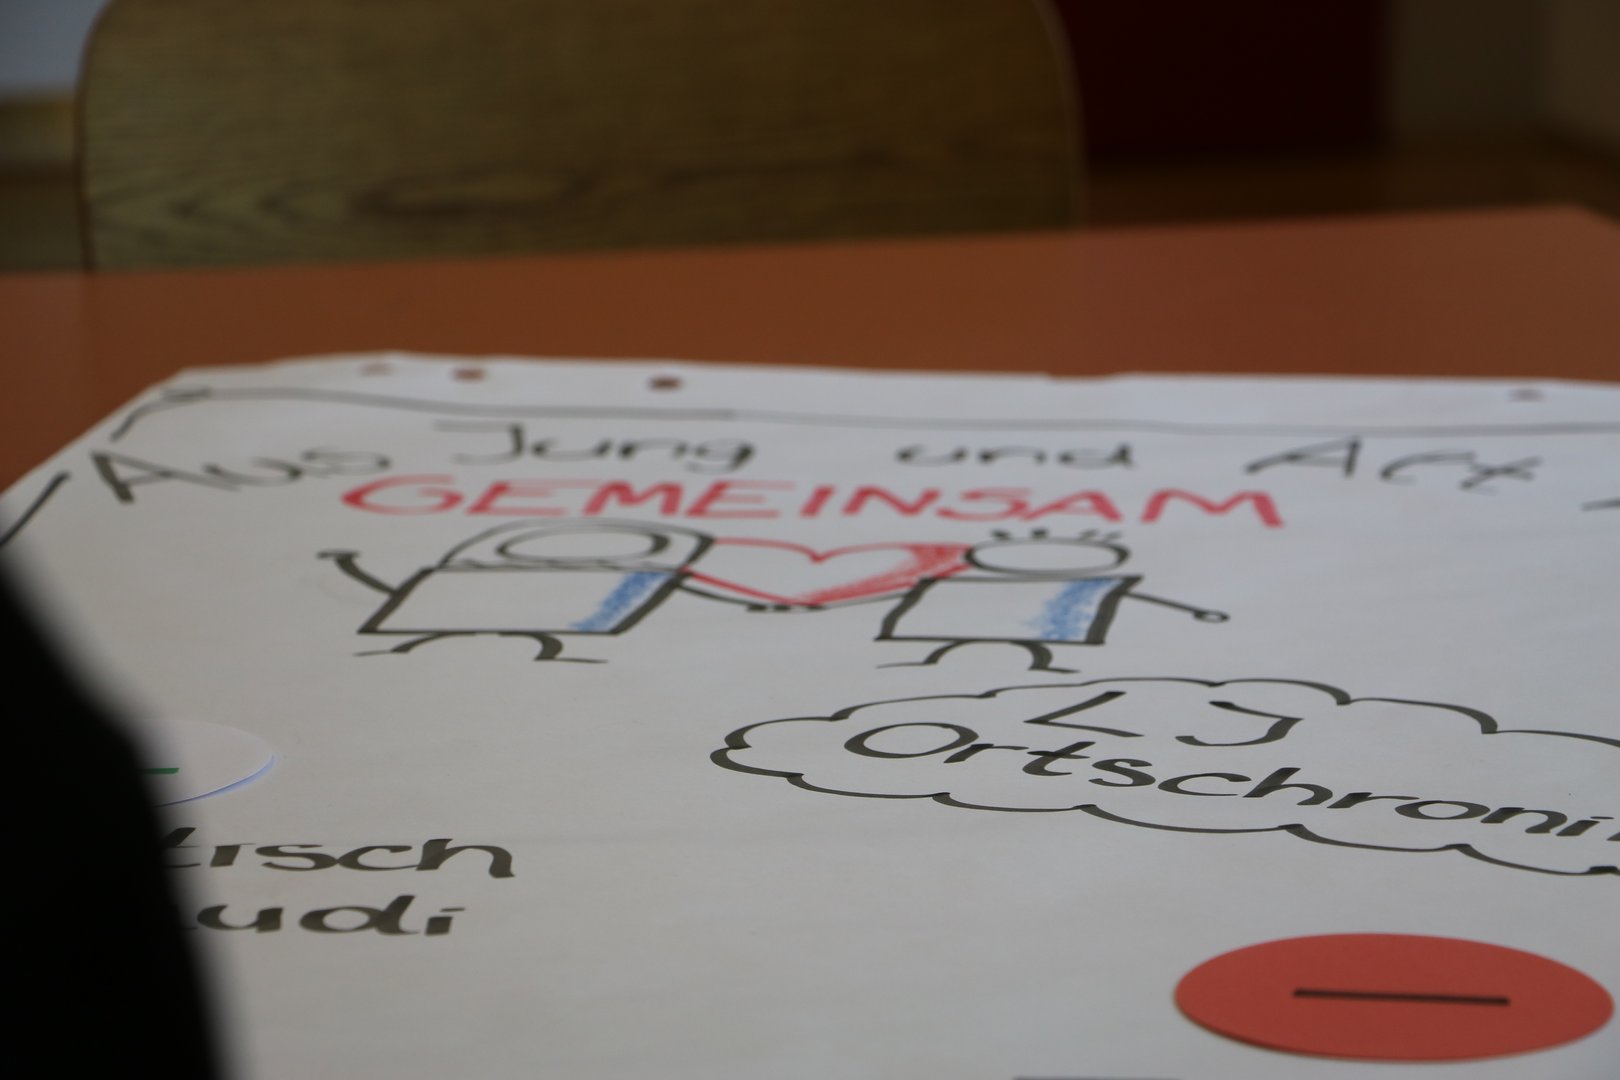 Aus Jung und Alt
GEMEINSAM
LJ
Ortschroni